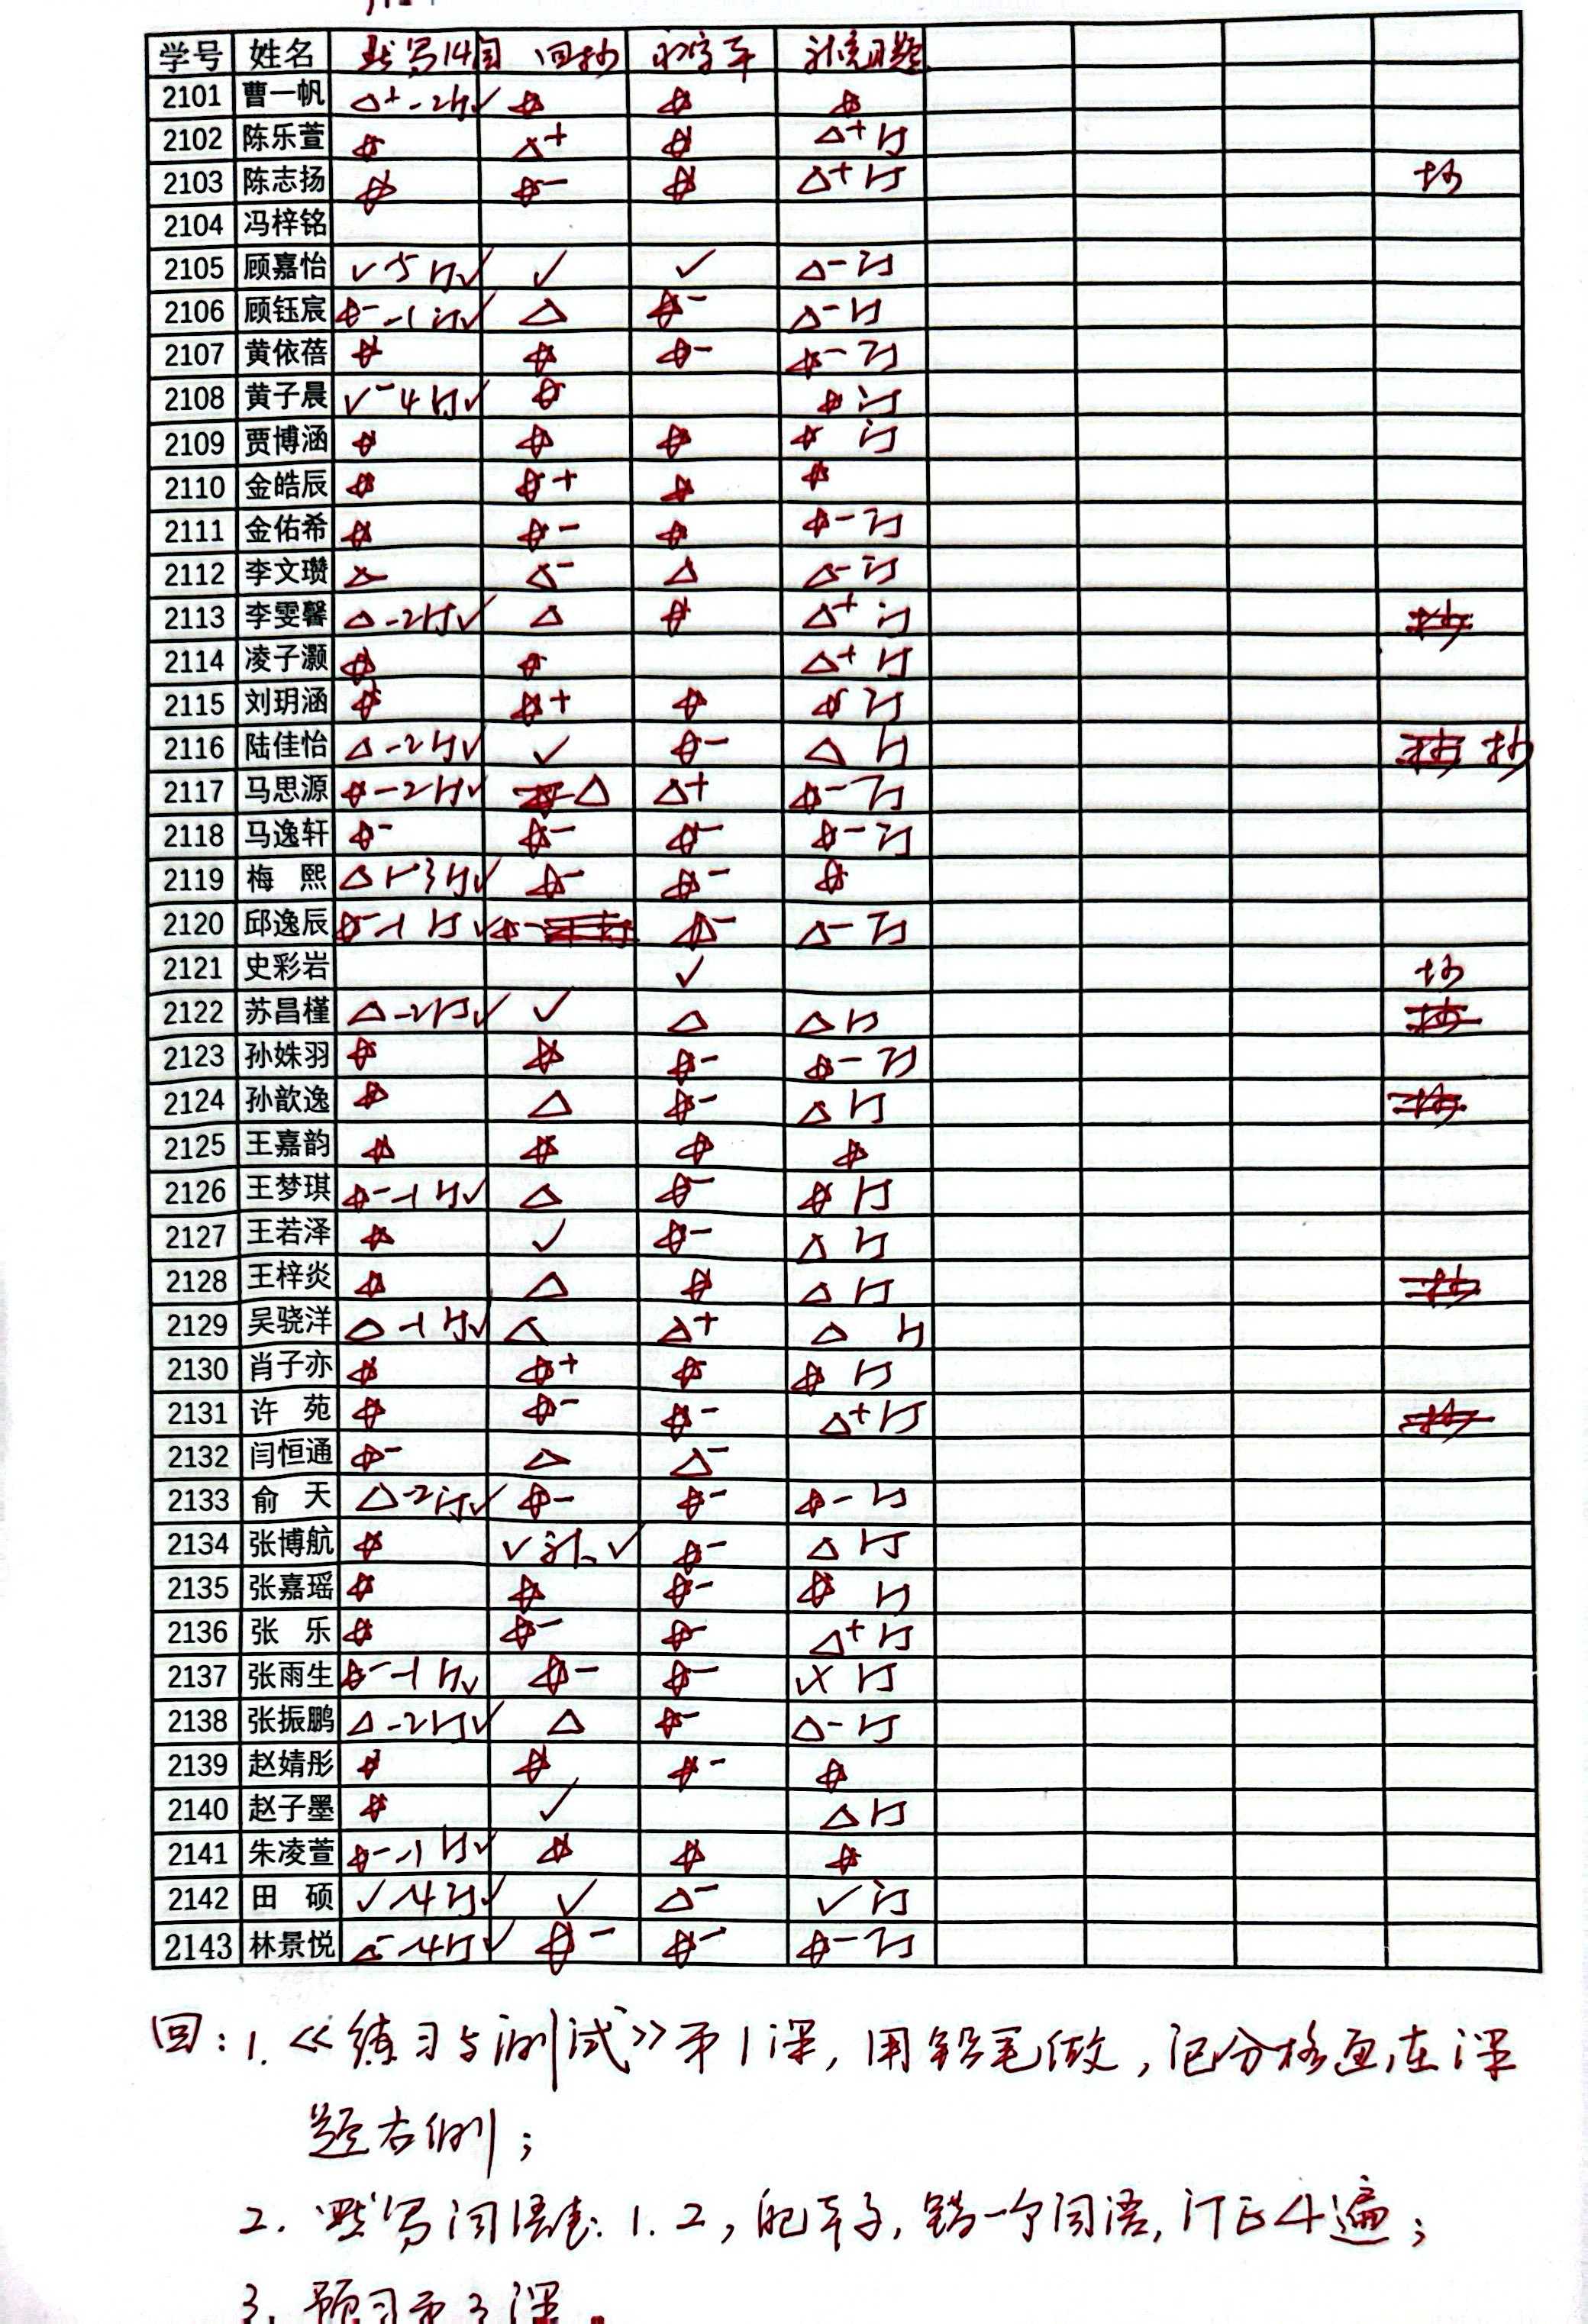 学号 姓名 默写14 回抄 习字本 补充习题
2101 曹一帆 △+ -2订✓
2102 陈乐萱 △+ △+订
2103 陈志扬 △+订 抄
2104 冯梓铭
2105 顾嘉怡 ✓ -5订✓ ✓ ✓ △-订
2106 顾钰宸 -1订✓ △ △-订
2107 黄依蓓 订
2108 黄子晨 ✓- 4订✓ 订
2109 贾博涵 订
2110 金皓辰
2111 金佑希 订
2112 李文瓒 △ △- △ △-订
2113 李雯馨 △ -2订✓ △ △+订
2114 凌子灏 △+订
2115 刘玥涵 订
2116 陆佳怡 △ -2订✓ ✓ △订 抄
2117 马思源 -2订✓ △ △+ 订
2118 马逸轩 订
2119 梅熙 △ -3订✓
2120 邱逸辰 -1订✓ △-订
2121 史彩岩 ✓ 抄
2122 苏昌槿 △ -2订✓ ✓ △ △订
2123 孙姝羽 订
2124 孙歆逸 △ △订
2125 王嘉韵
2126 王梦琪 -1订✓ △ 订
2127 王若泽 ✓ △订
2128 王梓炎 △ △订
2129 吴骁洋 △ -1订✓ △ △+ △订
2130 肖子亦 订
2131 许苑 △+订
2132 闫恒通 △ △-
2133 俞天 △ -2订✓ 订
2134 张博航 ✓补✓ △订
2135 张嘉瑶 订
2136 张乐 △+订
2137 张雨生 -1订✓ 订
2138 张振鹏 △ -2订✓ △ △-订
2139 赵婧彤
2140 赵子墨 ✓ △订
2141 朱凌萱 -1订✓
2142 田硕 ✓ -4订✓ ✓ △- ✓订
2143 林景悦 △- -4订✓ 订
回:1.《练习与测试》第1课,用铅笔做,记分格画在课
题右侧;
2. 默写词语表:1.2,配本子,错一个词语,订正4遍;
3. 预习第3课。